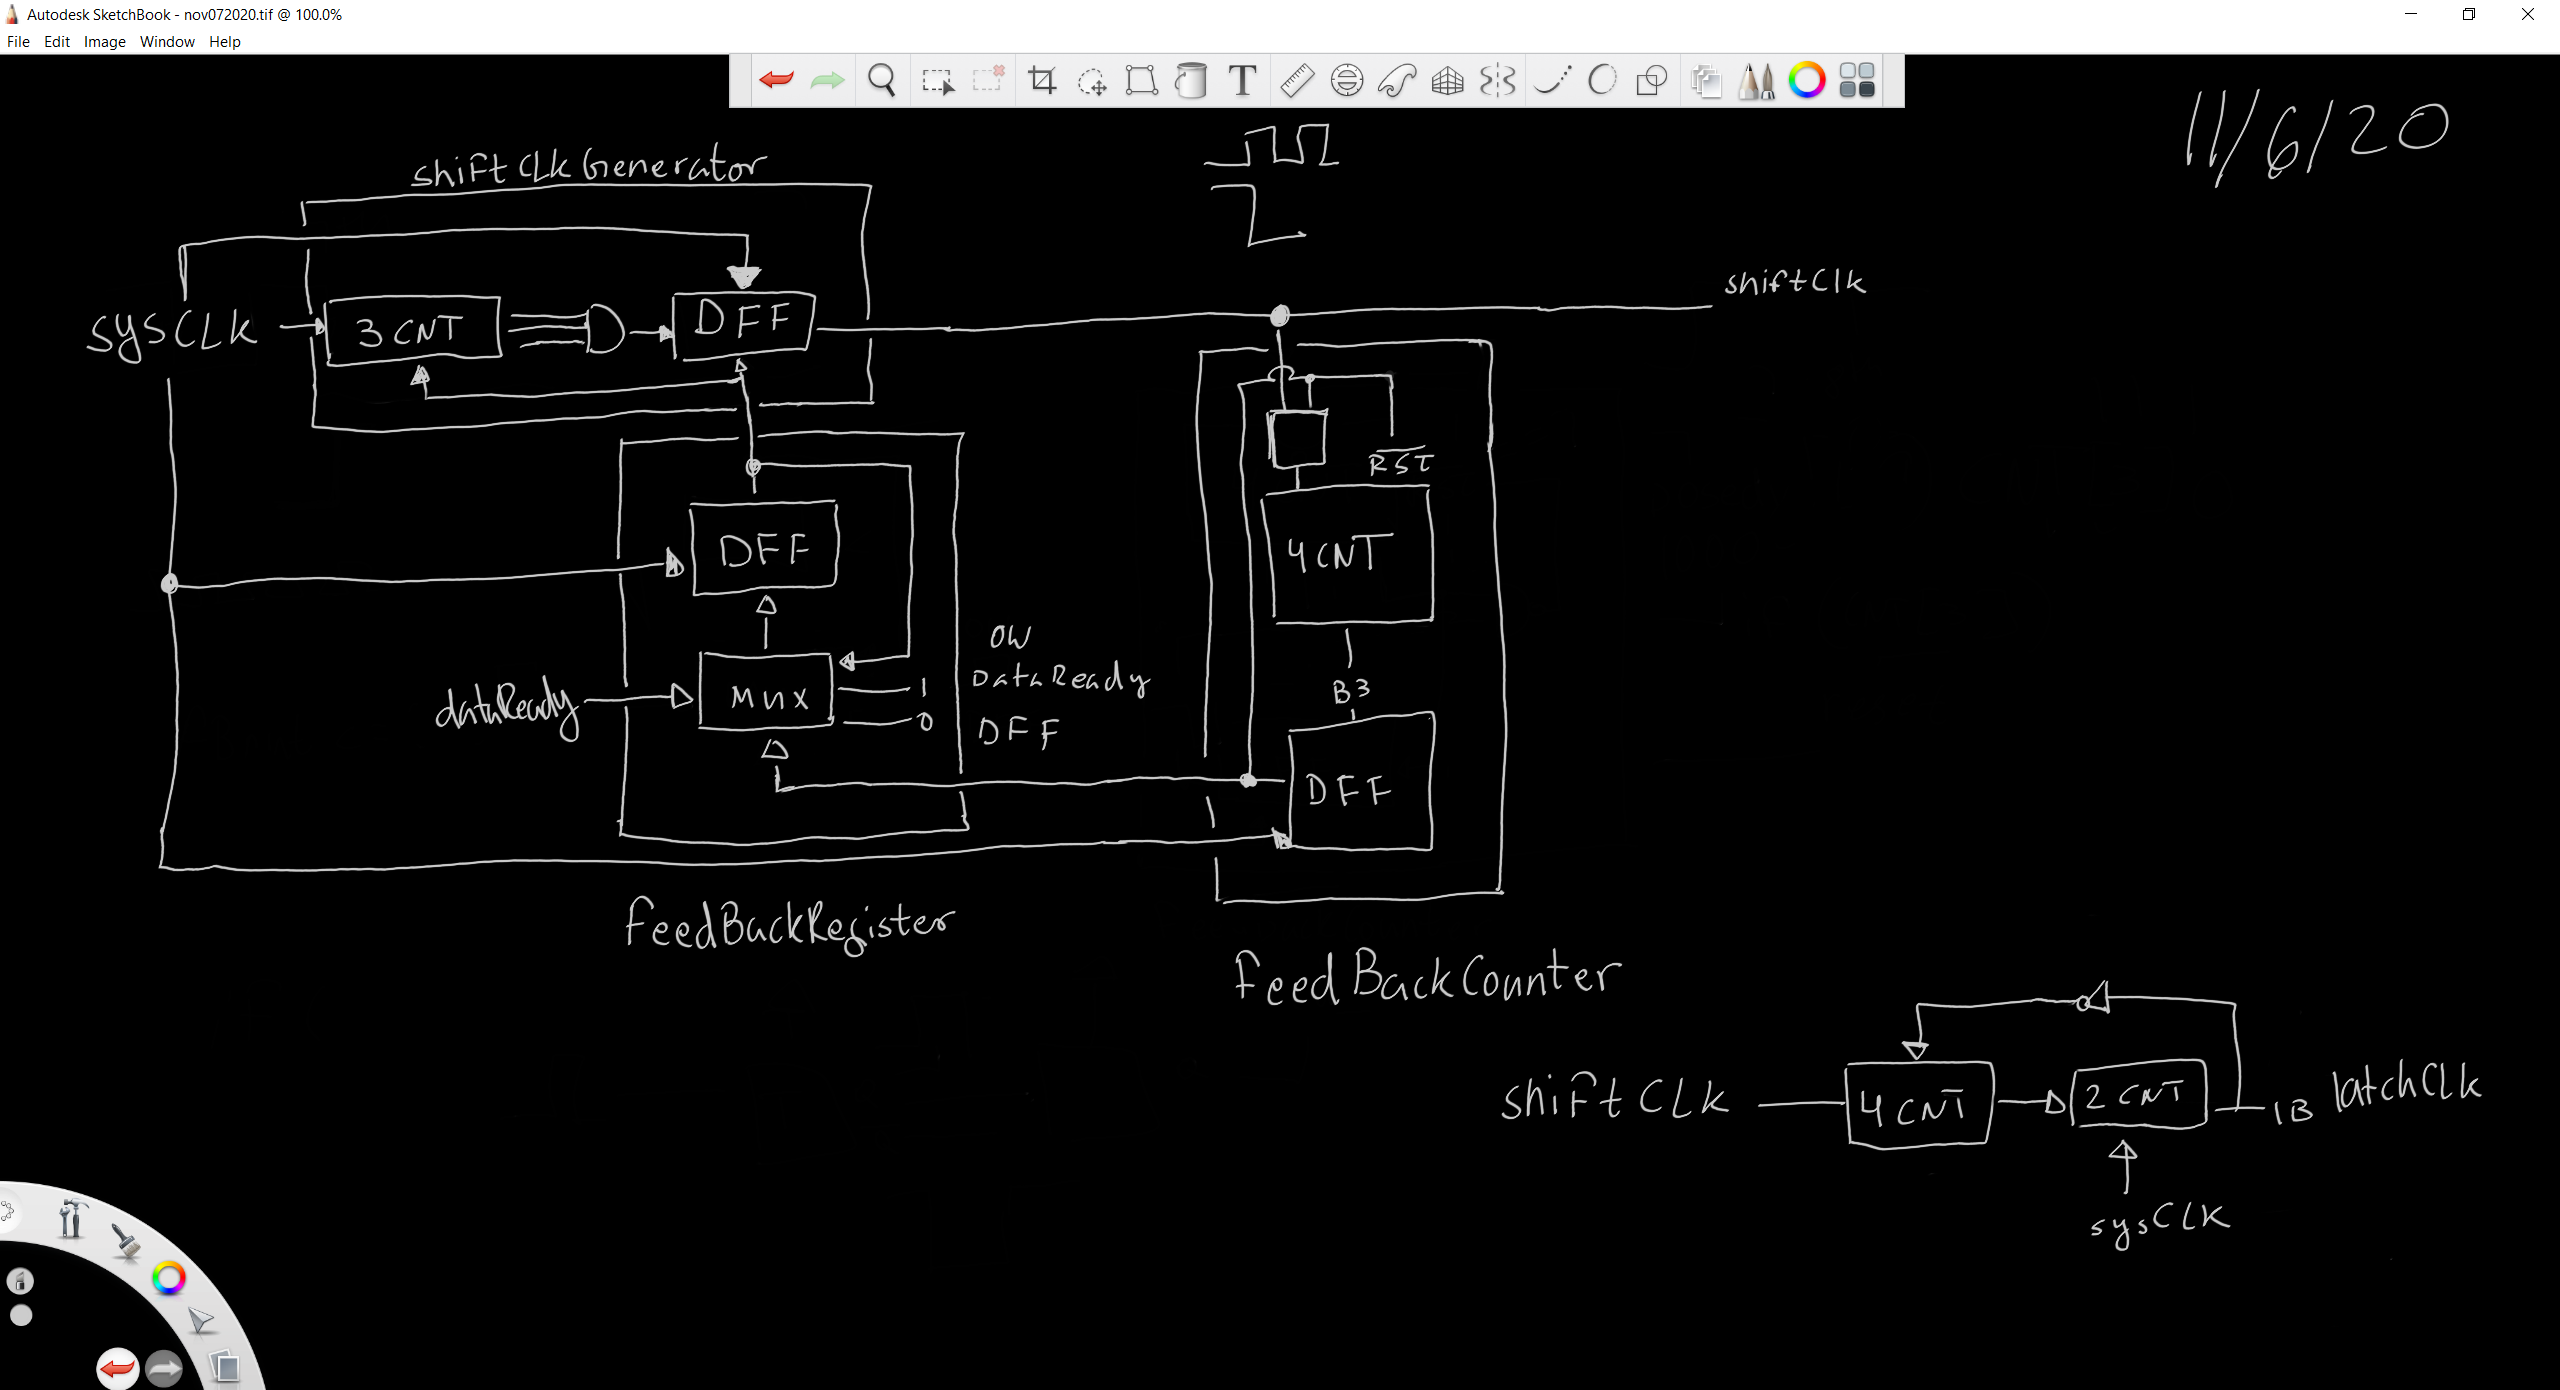 Autodesk SketchBook - nov072020.tif @ 100.0%
File Edit Image Window Help
T
11/6/20
shiftClkGenerator
shiftClk
sysCLK
3 CNT
DFF
RST
DFF
4 CNT
OW
DataReady
DFF
dataReady
Mux
1
0
B3
DFF
FeedBackRegister
FeedBackCounter
shiftCLK
4 CNT
2 CNT
1B latchClk
sysCLK